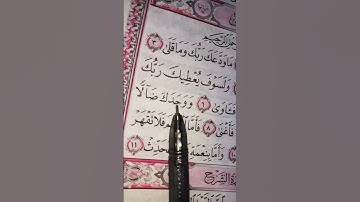 مَا وَدَّعَكَ رَبُّكَ وَمَا قَلَىٰ ٣
وَلَسَوْفَ يُعْطِيكَ رَبُّكَ
فَـَٔاوَىٰ ٦ وَوَجَدَكَ ضَآلًّا
فَأَغْنَىٰ ٨ فَأَمَّا فَلَا تَقْهَرْ
وَأَمَّا بِنِعْمَةِ حَدِّثْ ١١
الشَّرْحِ